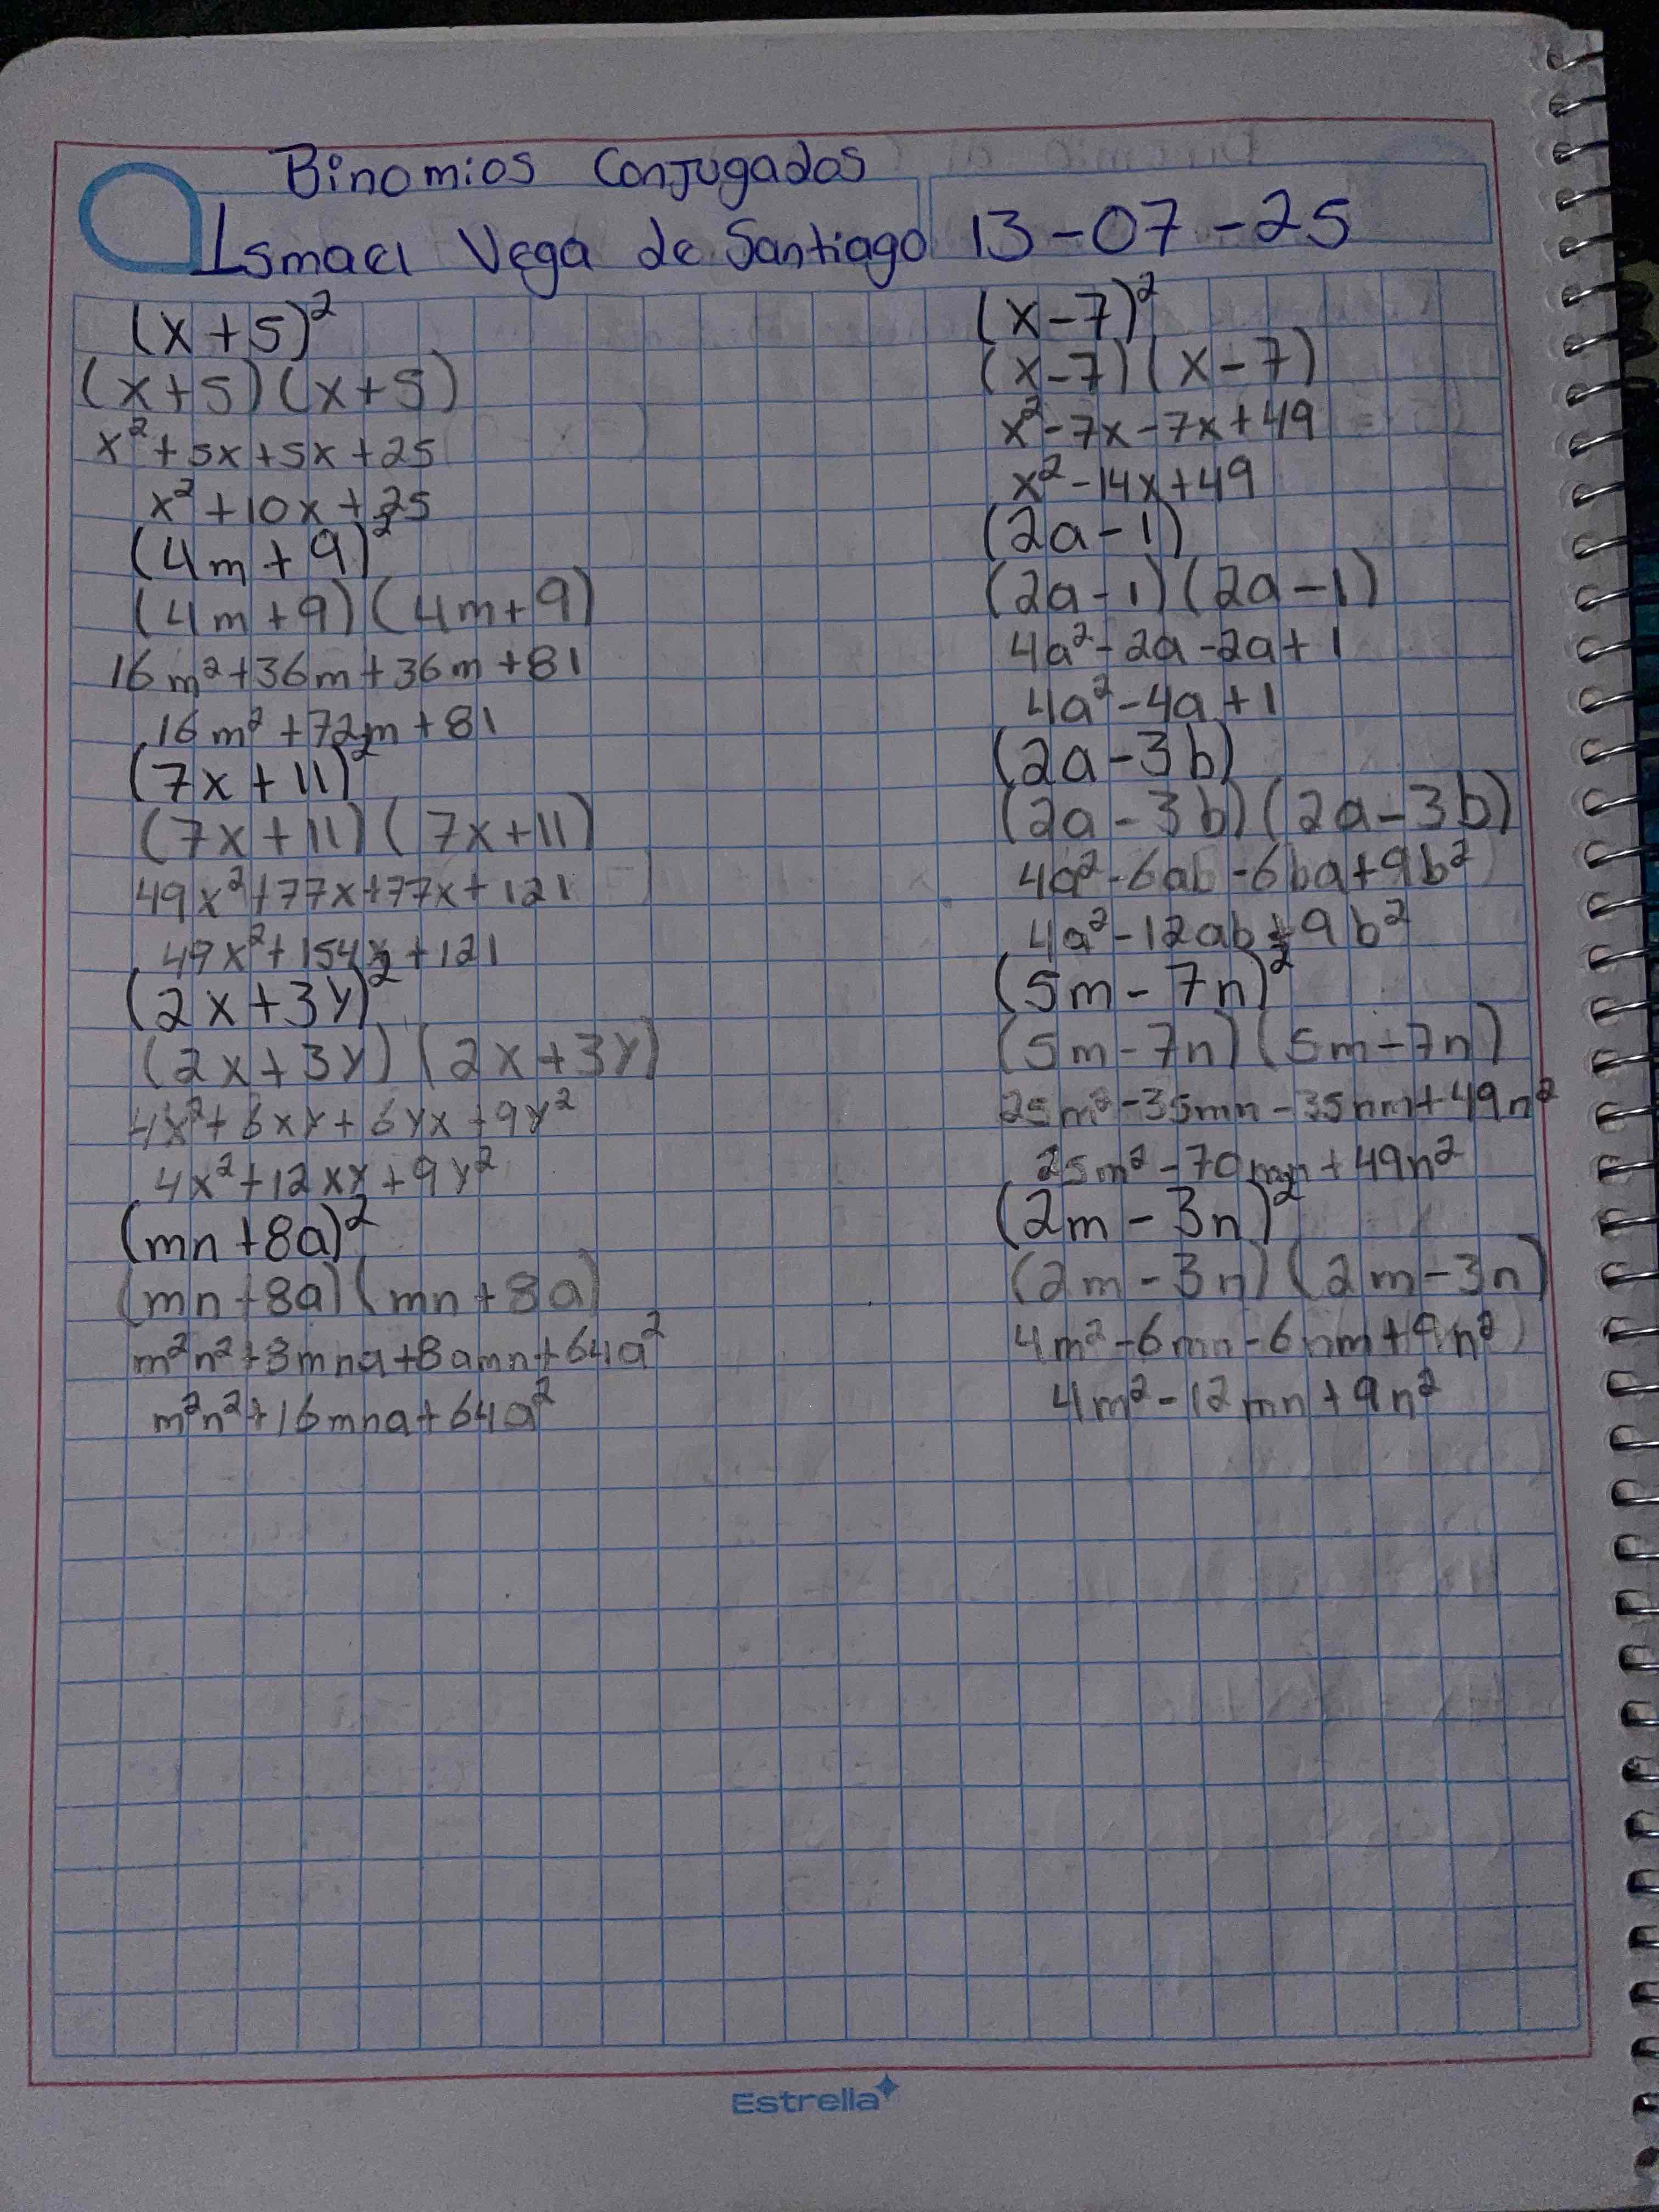 Binomios Conjugados
Ismael Vega de Santiago 13-07-25
(x+5)²
(x+5)(x+5)
x²+5x+5x+25
x²+10x+25
(4m+9)²
(4m+9)(4m+9)
16m²+36m+36m+81
16m²+72m+81
(7x+11)²
(7x+11)(7x+11)
49x²+77x+77x+121
49x²+154x+121
(2x+3y)²
(2x+3y)(2x+3y)
4x²+6xy+6yx+9y²
4x²+12xy+9y²
(mn+8a)²
(mn+8a)(mn+8a)
m²n²+8mna+8amn+64a²
m²n²+16mna+64a²
(x-7)²
(x-7)(x-7)
x²-7x-7x+49
x²-14x+49
(2a-1)
(2a-1)(2a-1)
4a²-2a-2a+1
4a²-4a+1
(2a-3b)
(2a-3b)(2a-3b)
4a²-6ab-6ba+9b²
4a²-12ab+9b²
(5m-7n)²
(5m-7n)(5m-7n)
25m²-35mn-35nm+49n²
25m²-70mn+49n²
(2m-3n)²
(2m-3n)(2m-3n)
4m²-6mn-6nm+9n²
4m²-12mn+9n²
Estrella